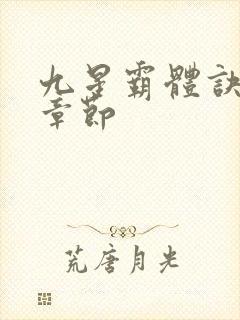 九星霸體訣
章節
荒唐月光